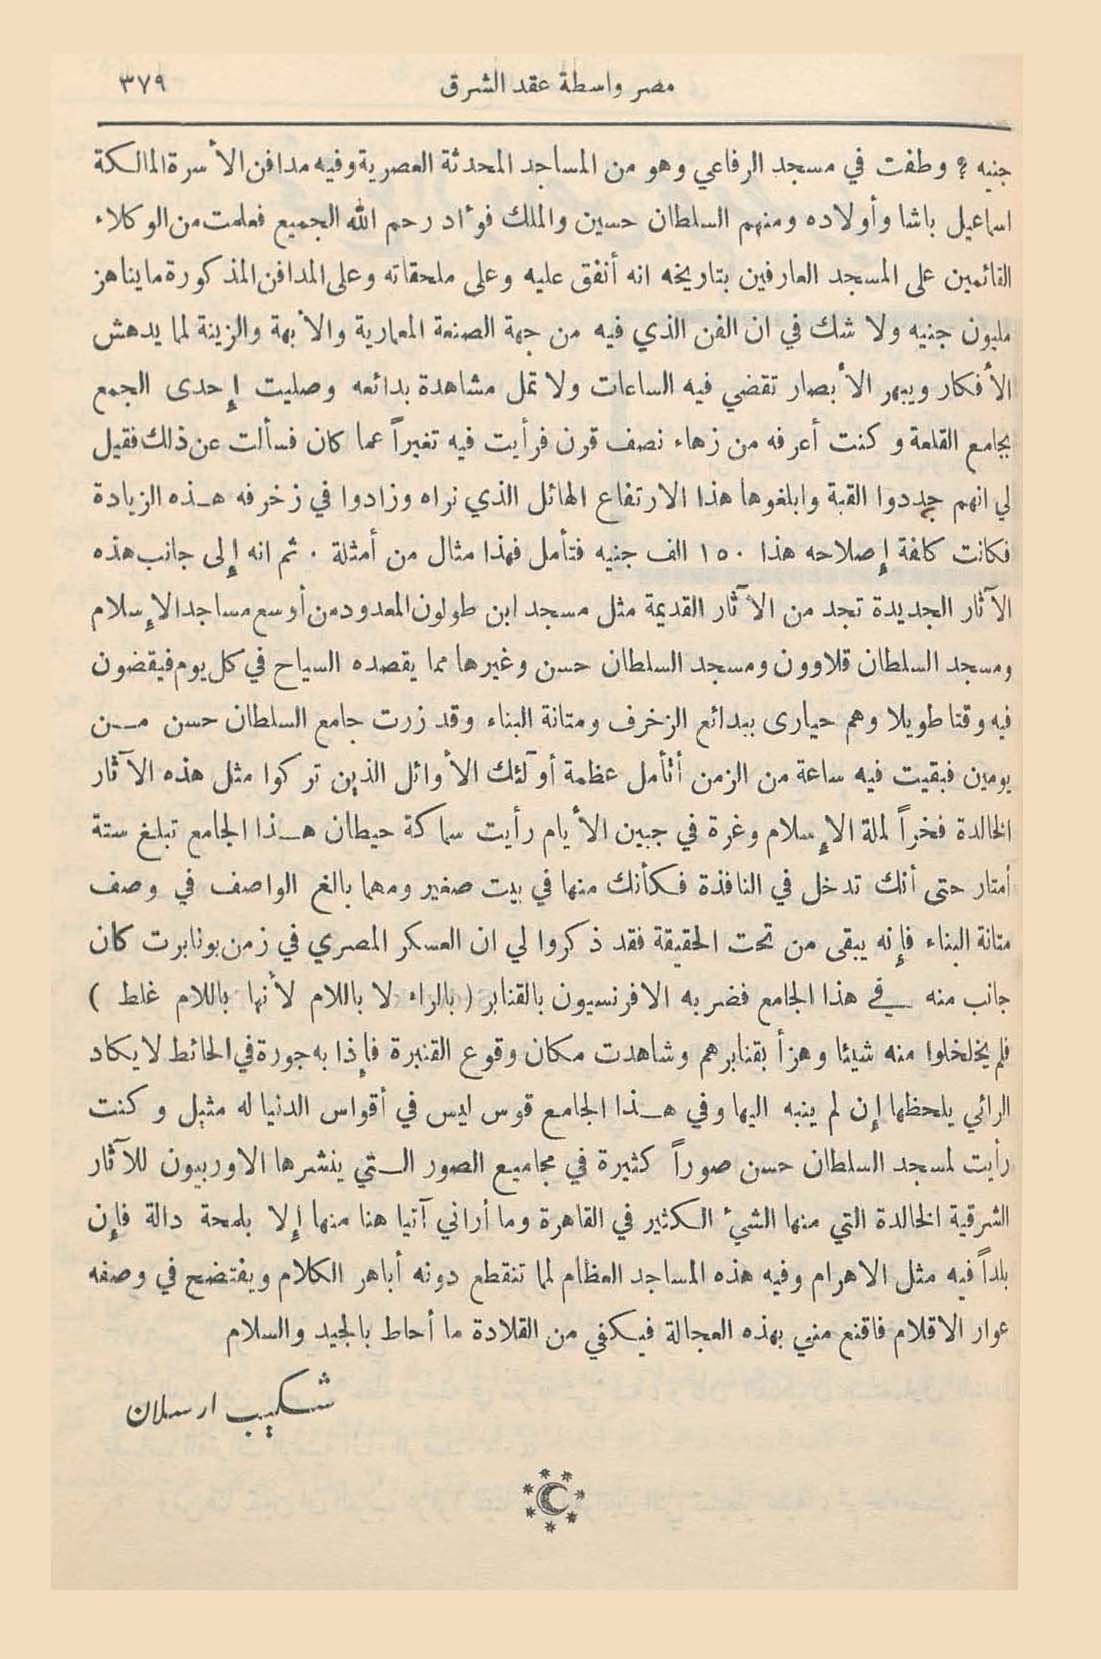 مصر واسطة عقد الشرق ٣٧٩
جنيه ؟ وطفت في مسجد الرفاعي وهو من المساجد المحدثة العصرية وفيه مدافن الأسرة المالكة
اسماعيل باشا وأولاده ومنهم السلطان حسين والملك فؤاد رحم الله الجميع فعلمت من الوكلاء
القائمين على المسجد العارفين بتاريخه انه أنفق عليه وعلى ملحقاته وعلى المدافن المذكورة ما يناهز
مليون جنيه ولا شك في ان الفن الذي فيه من جهة الصنعة المعمارية والأبهة والزينة لما يدهش
الأفكار ويبهر الأبصار تقضي فيه الساعات ولا تمل مشاهدة بدائعه وصليت إحدى الجمع
بجامع القلعة وكنت أعرفه من زهاء نصف قرن فرأيت فيه تغيراً عما كان فسألت عن ذلك فقيل
لي انهم جددوا القبة وابلغوها هذا الارتفاع الهائل الذي نراه وزادوا في زخرفه هـذه الزيادة
فكانت كلفة إصلاحه هذا ١٥٠ الف جنيه فتأمل فهذا مثال من أمثلة . ثم انه إلى جانب هذه
الآثار الجديدة تجد من الآثار القديمة مثل مسجد ابن طولون المعدود من أوسع مساجد الإسلام
ومسجد السلطان قلاوون ومسجد السلطان حسن وغيرها مما يقصده السياح في كل يوم فيقضون
فيه وقتا طويلا وهم حيارى ببدائع الزخرف ومتانة البناء وقد زرت جامع السلطان حسن مـن
يومين فبقيت فيه ساعة من الزمن أتأمل عظمة أولئك الأوائل الذين تركوا مثل هذه الآثار
الخالدة فخراً لملة الإسلام وغرة في جبين الأيام رأيت سماكة حيطان هـذا الجامع تبلغ ستة
أمتار حتى أنك تدخل في النافذة فكأنك منها في بيت صغير ومهما بالغ الواصف في وصف
متانة البناء فإنه يبقى من تحت الحقيقة فقد ذكروا لي ان العسكر المصري في زمن بونابرت كان
جانب منه في هذا الجامع فضربه الافرنسيون بالقنابر ( بالراء لا باللام لأنها باللام غلط )
فلم يخلخلوا منه شيئا وهزأ بقنابرهم وشاهدت مكان وقوع القنبرة فإذا به جورة في الحائط لا يكاد
الرائي يلحظها إن لم ينبه اليها وفي هـذا الجامع قوس ليس في أقواس الدنيا له مثيل وكنت
رأيت لمسجد السلطان حسن صوراً كثيرة في مجاميع الصور الـتي ينشرها الاوربيون للآثار
الشرقية الخالدة التي منها الشيء الكثير في القاهرة وما أراني آتيا هنا منها إلا بلمحة دالة فإن
بلداً فيه مثل الاهرام وفيه هذه المساجد العظام لما تنقطع دونه أباهر الكلام ويفتضح في وصفه
عوار الاقلام فاقنع مني بهذه العجالة فيكفي من القلادة ما أحاط بالجيد والسلام
شكيب ارسلان